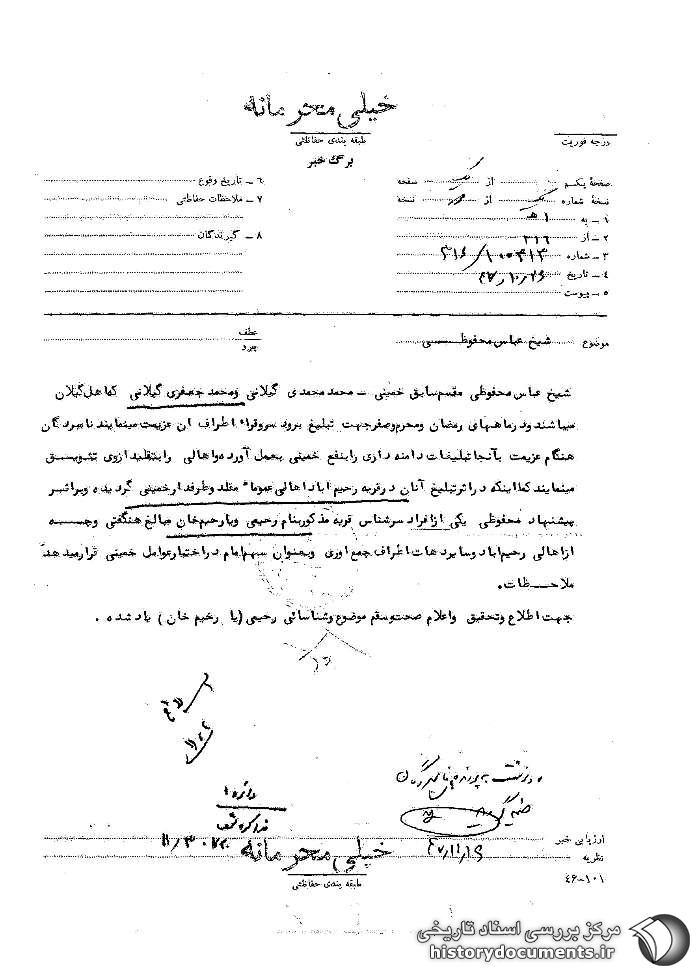 خیلی محرمانه
طبقه بندی حفاظتی
برگ خبر
درجه فوریت
صفحهٔ یکم از یک صفحه
نسخهٔ شماره از نسخه
۱ – به ۱ هـ
۲ – از ۳۱۶
۳ – شماره ۳۱۶/۱۰۰۴۱۳
۴ – تاریخ ۴۷/۱۰/۲۶
۵ – پیوست
۶ – تاریخ وقوع
۷ – ملاحظات حفاظتی
۸ – گیرندگان
موضوع شیخ عباس محفوظی
عطف
پیرو
شیخ عباس محفوظی مقسم سابق خمینی – محمد محمدی گیلانی ومحمد جعفری گیلانی که اهل گیلان
میباشند در ماههای رمضان ومحرم وصفر جهت تبلیغ برود سر وقراء اطراف ان عزیمت مینمایند نامبردگان
هنگام عزیمت بآنجا تبلیغات دامنه داری را بنفع خمینی بعمل آورده واهالی را بتقلید از وی تشویق
مینمایند کما اینکه در اثر تبلیغ آنان در قریه رحیم اباد اهالی عموماً مقلد وطرفدار خمینی گردیده وبراثر
پیشنهاد محفوظی یکی از افراد سرشناس قریه مذکور بنام رحیمی ویا رحیم خان مبالغ هنگفتی وجه
از اهالی رحیم اباد وسایر دهات اطراف جمع اوری وبعنوان سهم امام در اختیار عوامل خمینی قرار میدهد
ملاحظات.
جهت اطلاع وتحقیق واعلام صحت وسقم موضوع وشناسائی رحیمی (یا رحیم خان) یاد شده .
دائره ۱
مذاکره شد
ارزیابی خبر
نظریه
۴۷/۱۱/۱۶
خیلی محرمانه
طبقه بندی حفاظتی
۴۶-۱۰۱
مرکز بررسی اسناد تاریخی
historydocuments.ir